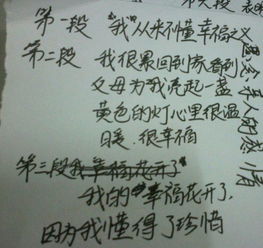 第一段 "我"从来不懂幸福之义
第二段 我很累回到家看到
父母为我亮起一盏
黄色的灯心里很温
暖.很幸福
第三段我幸福花开了
我的"幸福花开了,
因为我懂得了珍惜